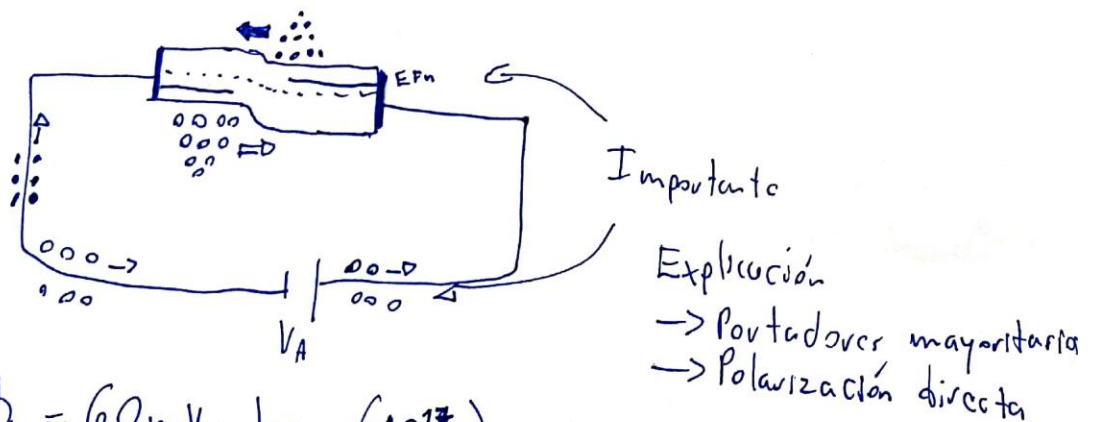 EFn
Importante
Explicación
-> Portadores mayoritaria
-> Polarización directa
VA